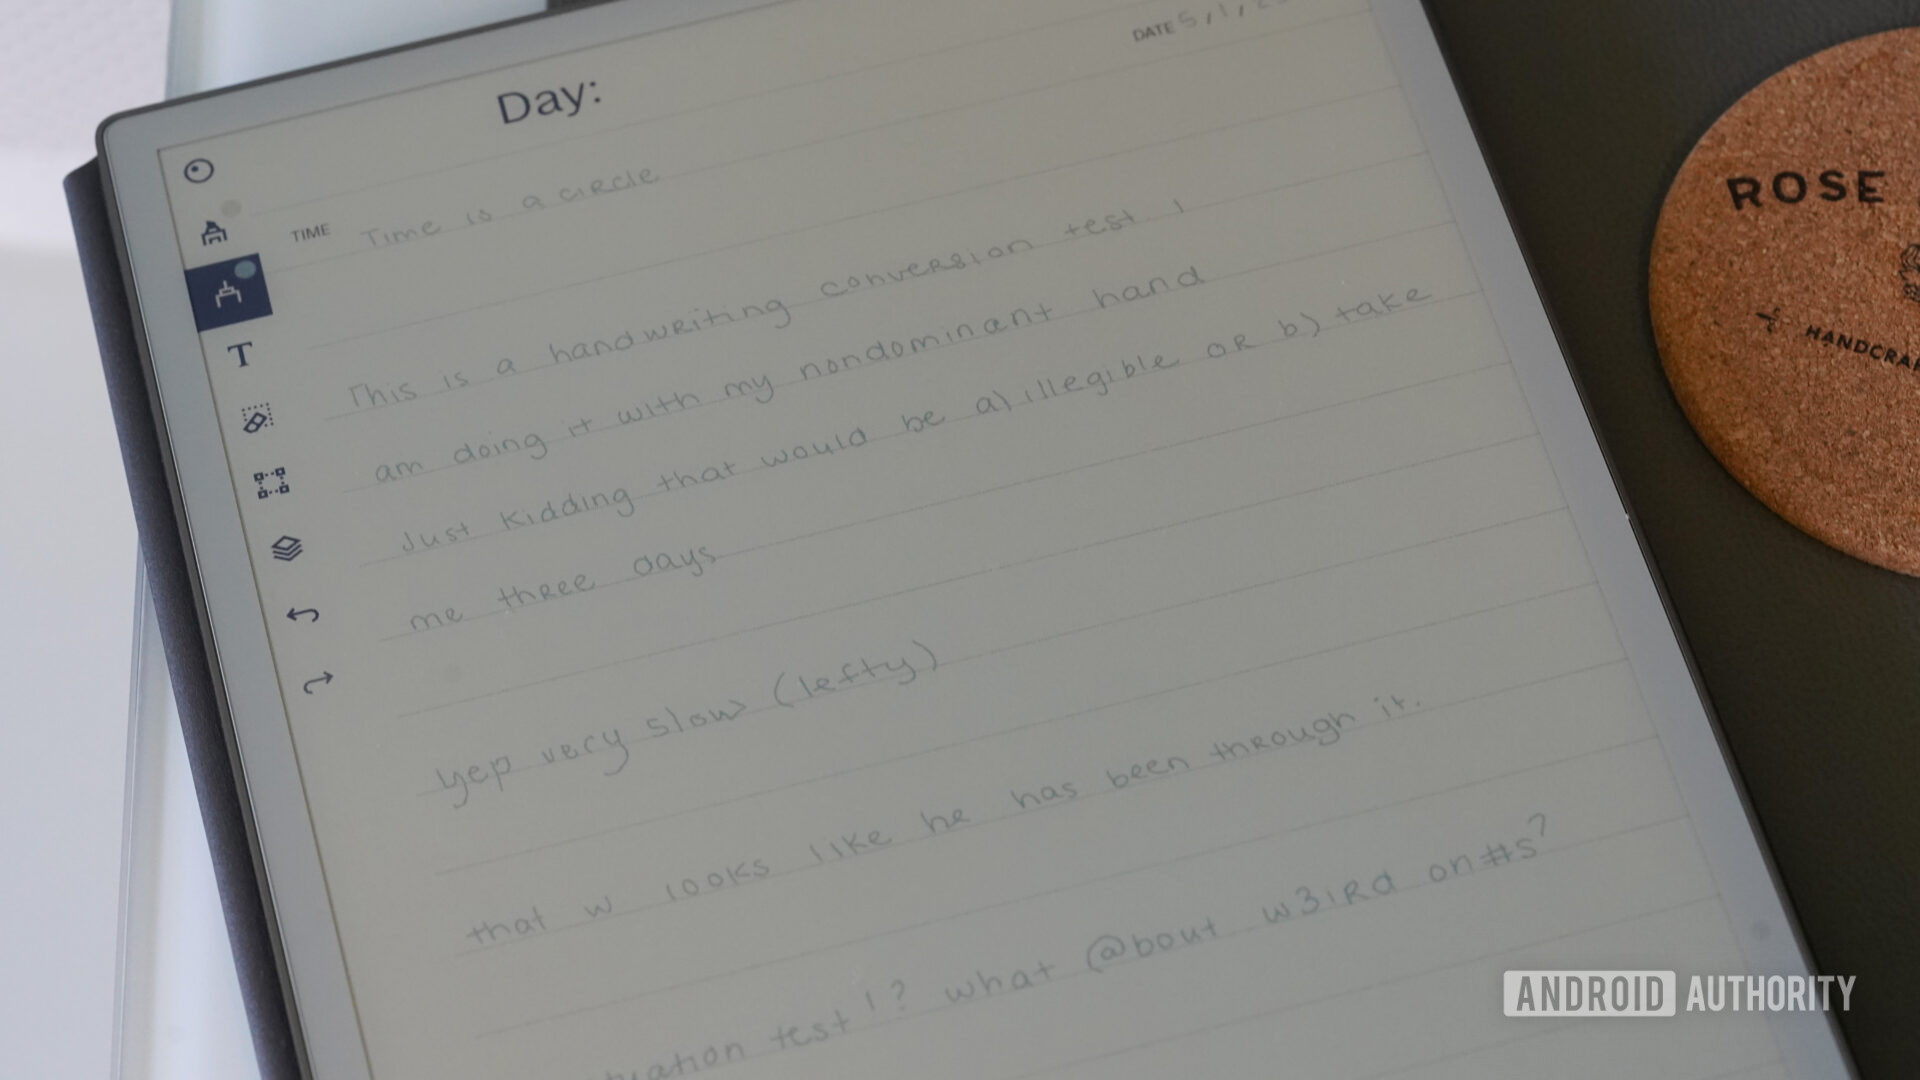 DATE 5/1/2
Day:
TIME Time is a circle
This is a handwriting conversion test I
am doing it with my nondominant hand
Just kidding that would be a) illegible or b) take
me three days
yep very slow (lefty)
that w looks like he has been through it.
test!? what @bout w3ird on#s?
ROSE
HANDCRA
ANDROID AUTHORITY